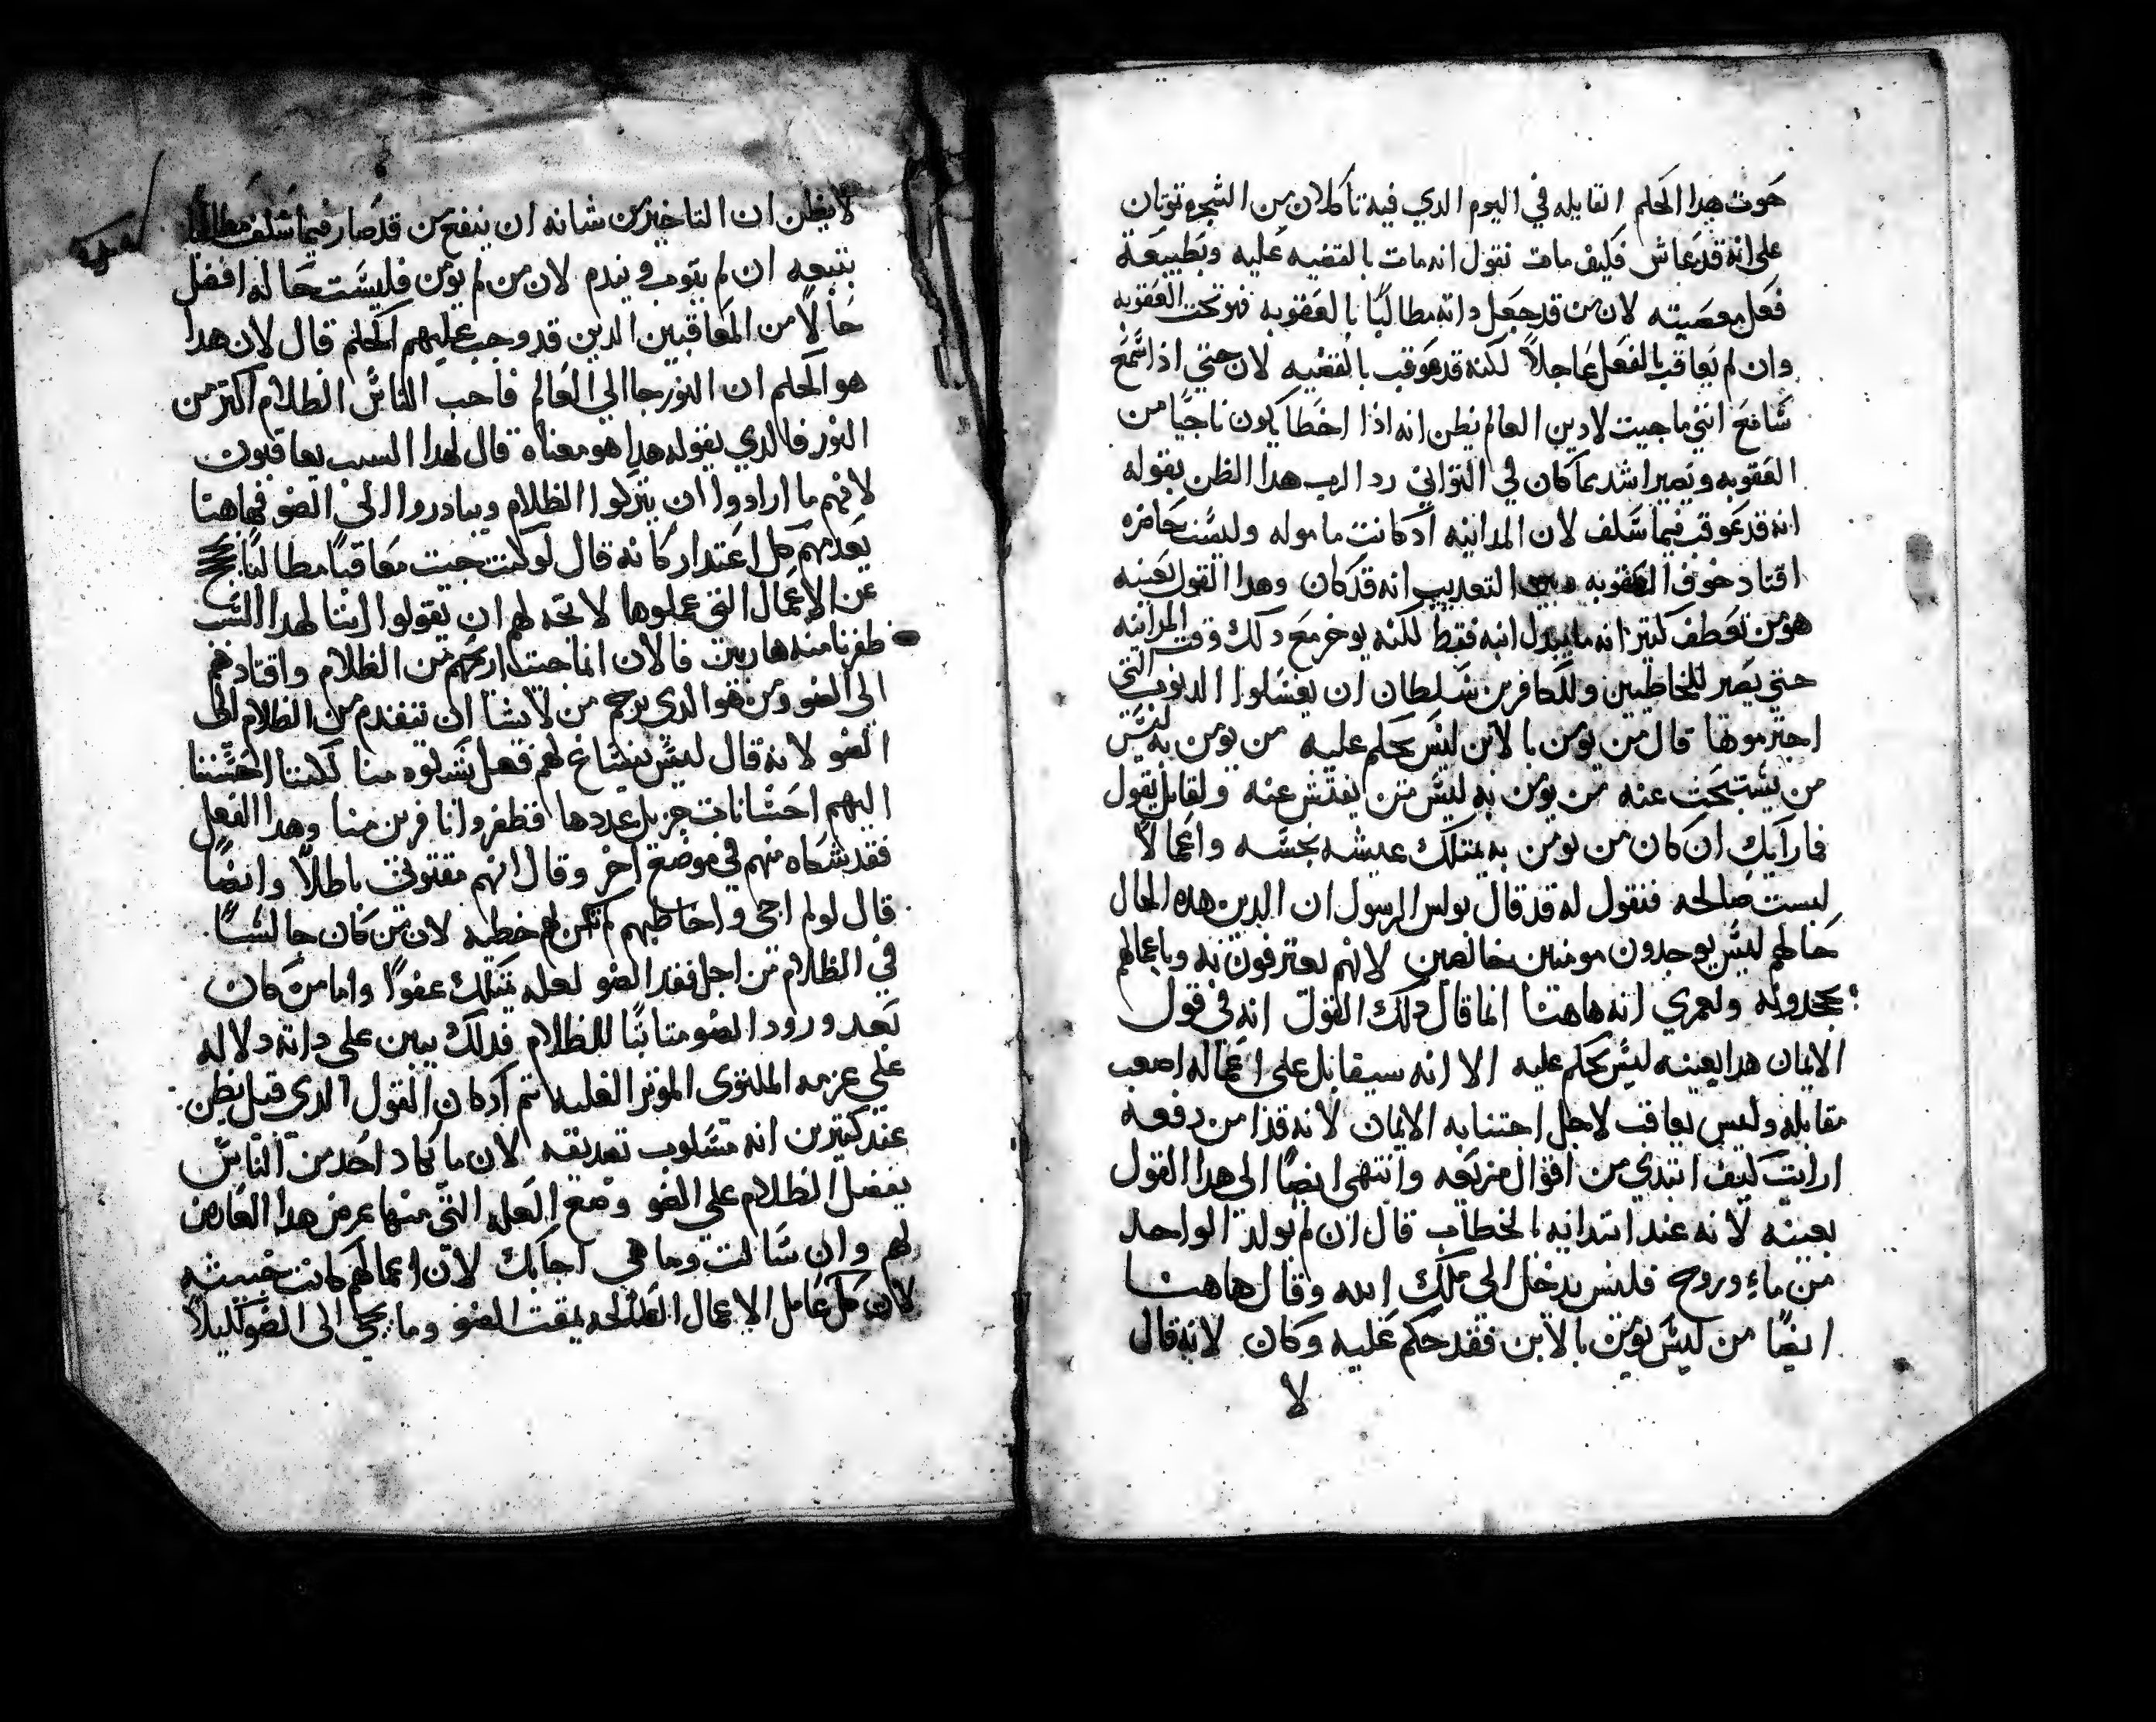 حوت هدا الحكم القايله في اليوم الدي فيه تاكلان من الشجره تموتان
على انه قد عاش فكيف مات نقول انه مات بالقضيه عليه وبطبيعة
فعل معصيته لان من قد جعل داته مطالبًا بالعقوبه فهو تحت العقوبه
وان لم يعاقب بالفعل عاجلاً لكنه قد عوقب بالقضيه لان حتي اذا سمع
سامع انني ما جيت لادين العالم يظن انه اذا اخطا يكون ناجيًا من
العقوبه ويصير اشد مما كان في التواني رد الرب هدا الظن بقوله
انه قد عوقب فيما سلف لان المداينه اد كانت ماموله وليست حاضره
اقتاد خوف العقوبه التعديب انه قد كان وهدا القول بعينه
هو من تعطف كتير انه ما يبدل ابنه فقط لكنه يوخر مع دلك وقت المداينه
حتي يصير للخاطيين وللكافرين سلطان ان يغسلوا الدنوب التي
اجترموها قال من يومن بالابن ليس يحكم عليه من يومن به ليس
من يستبحث عنه من يومن به ليس من يفتش عنه ولقايل يقول
فما رايك ان كان من يومن به يمتلك عيشه نجسه واعمالاً
ليست صالحه فنقول له قد قال بولس الرسول ان الدين هده الحال
حالهم ليس يوجدون مومنين خالصين لانهم يعترفون به وباعمالهم
يجحدونه ولعمري انه هاهنا انما قال دلك القول انه في قول
الايمان هدا بعينه ليس يحكم عليه الا انه سيقابل على اعماله اصعب
مقابله وليس يعاقب لاجل اجتنابه الايمان لانه قدامن دفعه
ارايت كيف ابتدي من اقوال مزيعه وانتهى ايضًا الى هدا القول
بعينه لانه عند ابتدايه الخطاب قال ان لم يولد الواحد
من ماء وروح فليس يدخل الى ملك الله وقال هاهنا
ايضًا من ليس يومن بالابن فقد حكم عليه وكان لانه قال
لا
لا يظن ان التاخير من شانه ان ينفع من قد صار فيما سلف مطالبًا
بتبعه ان لم يتوب ويندم لان من لم يومن فليست حاله افضل
حالاً من المعاقبين الدين قد وجب عليهم الحكم قال لان هدا
هو الحكم ان النور جا الي العالم فاحب الناس الظلام اكتر من
النور فالدي يقوله هدا هو معناه قال لهدا السبب يعاقبون
لانهم ما ارادوا ان يتركوا الظلام ويبادروا الي الضو فهاهنا
يعدمهم كل اعتدار كانه قال لو كنت جيت معاقبًا مطالبًا
عن الاعمال التي عملوها لاتجه لهم ان يقولوا اننا لهدا السبب
ظفرنا منه هاربين فالان انما جيت ارجهم من الظلام واقتادهم
الى الضو ومن هو الدي يرحم من لا يشا ان يتقدم من الظلام الى
الضو لانه قال ليس ينساغ لهم فعل يشكوه منا لكننا احسننا
اليهم احسانات جزيل عددها فظفروا نافرين منا وهدا الفعل
فقد شكاه منهم في موضع اخر وقال انهم مقتوني باطلاً وايضًا
قال لو لم اجي واخاطبهم لم تكن لهم خطيه لان من كان جالسًا
في الظلام من اجل فقد الضو لعله يمتلك عفوًا واما من كان
بعد ورود الضو متابتًا للظلام فدلك يبين على داته دلاله
على عزمه الملتوى الموثر الغلبه تم اد كان القول الدي قيل يظن
عند كتيرين انه مسلوب تصديقه لان ما يكاد احد من الناس
يفضل الظلام علي الضو وضع العله التي منها عرض هدا العارض
لهم وان سالت وما هي اجابك لان اعمالهم كانت خبيثه
لان كل عامل الاعمال الطالحه يمقت الضو وما يجي الى الضو لكيلا